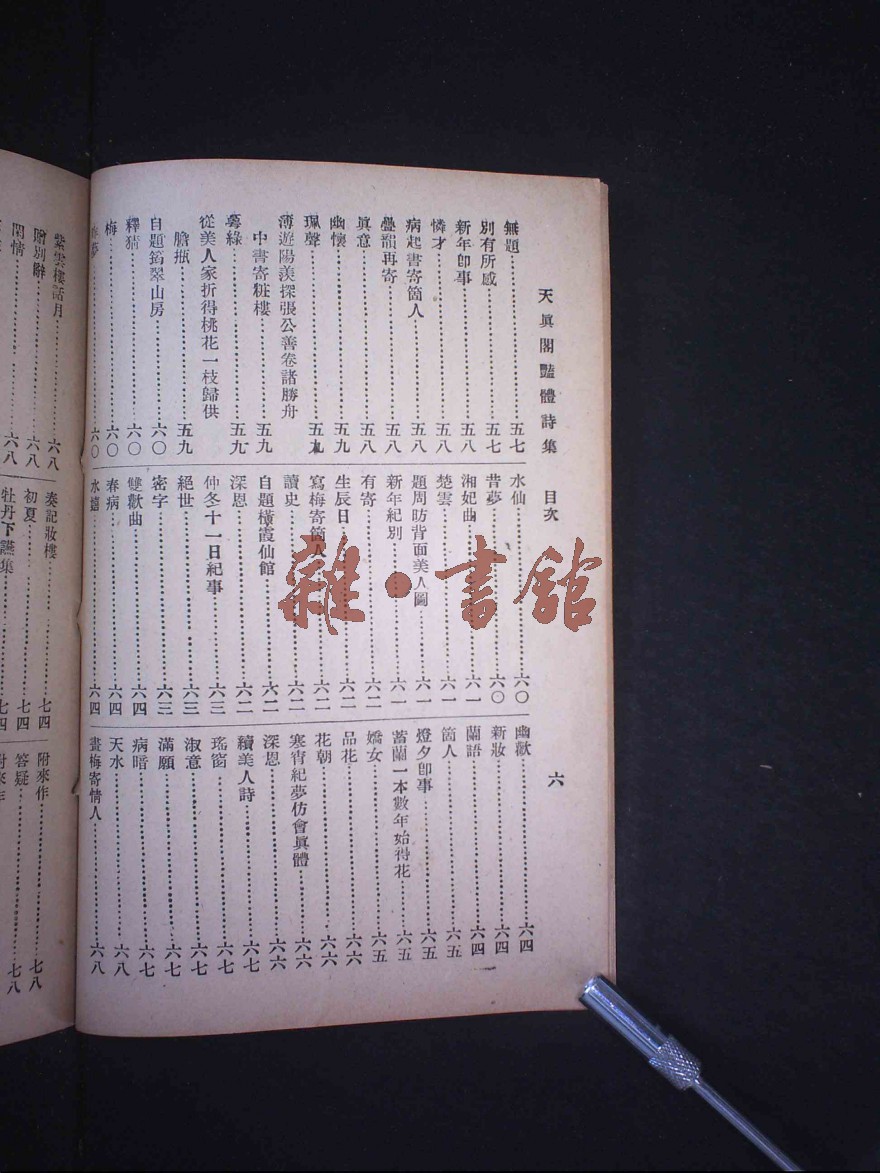 天眞閣豔體詩集 目次 六
無題 五七
別有所感 五七
新年卽事 五八
憐才 五八
病起書寄箇人 五八
疊韻再寄 五八
眞意 五八
幽懷 五九
珮聲 五九
薄遊陽羨探張公善卷諸勝舟
中書寄粧樓 五九
萼綠 五九
從美人家折得桃花一枝歸供
膽瓶 五九
自題筠翠山房 六〇
釋猜 六〇
梅 六〇
夢 六〇
水仙 六〇
昔夢 六〇
湘妃曲 六一
楚雲 六一
題周昉背面美人圖 六一
新年紀別 六一
有寄 六二
生辰日 六二
寫梅寄箇人 六二
讀史 六二
自題槿霞仙館 六二
深恩 六二
仲冬十一日紀事 六三
絕世 六三
密字 六三
雙歡曲 六四
春病 六四
水嬉 六四
幽歡 六四
新妝 六四
蘭語 六四
箇人 六五
燈夕卽事 六五
蓄蘭一本數年始得花 六五
嬌女 六五
品花 六六
花朝 六六
寒宵紀夢仿會眞體 六六
深恩 六六
續美人詩 六七
瑤窗 六七
淑意 六七
滿願 六七
病暗 六七
天水 六八
畫梅寄情人 六八
紫雲樓話月 六八
贈別辭 六八
閑情 六八
奏記妝樓 七四
初夏 七四
牡丹下讌集 七四
附來作 七八
答疑 七八
附來作
雜·書館